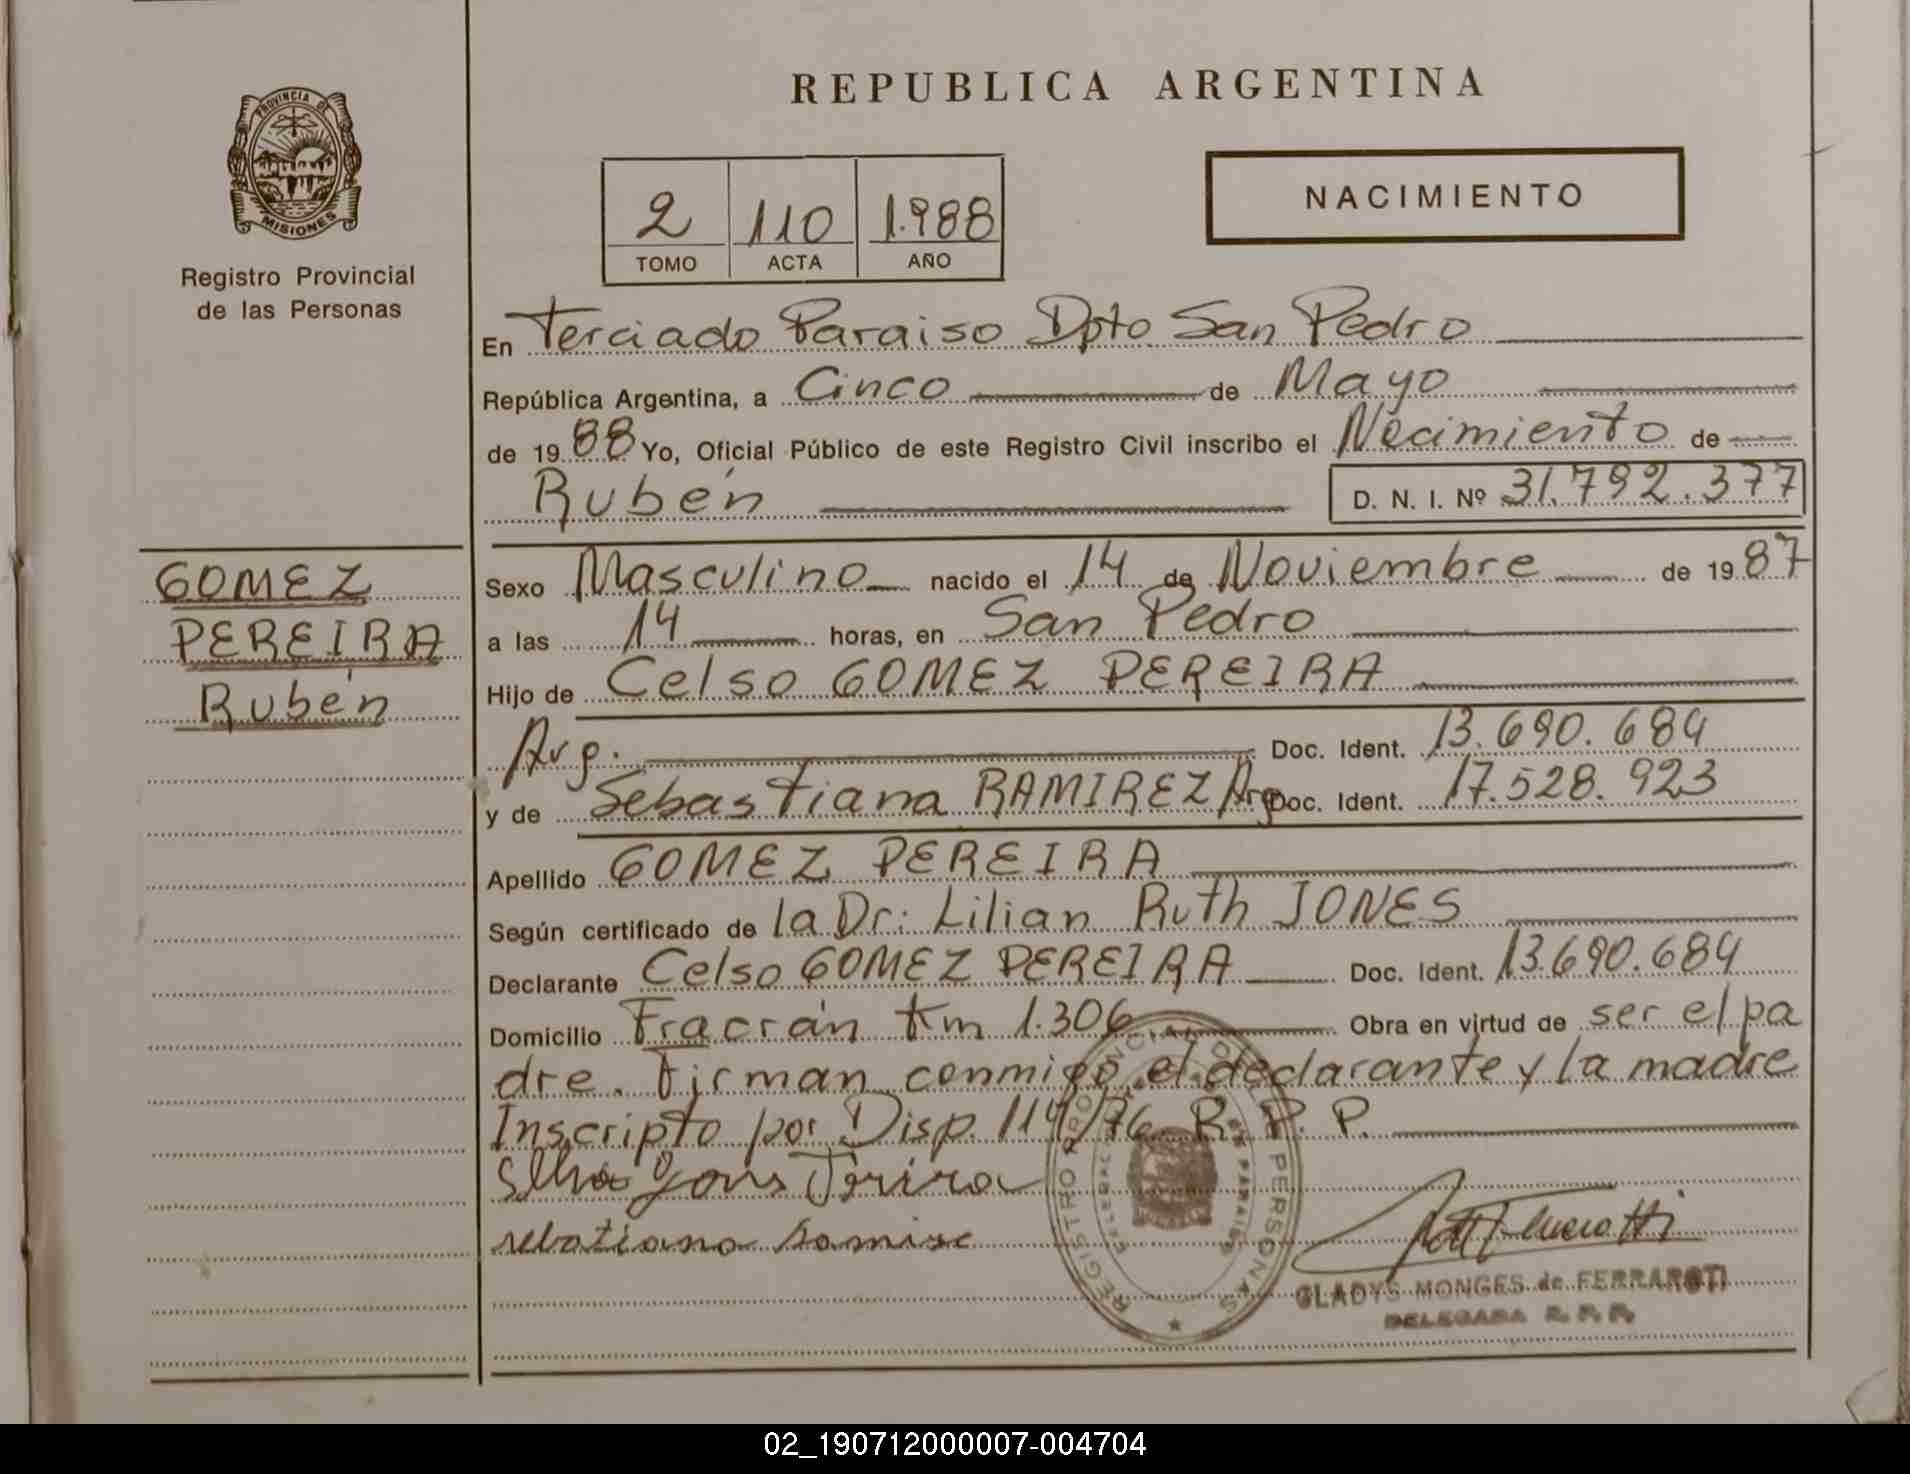 REPUBLICA ARGENTINA
PROVINCIA DE
MISIONES
Registro Provincial
de las Personas
2 110 1.988
TOMO ACTA AÑO
NACIMIENTO
En Terciado Paraiso Dpto San Pedro
República Argentina, a Cinco de Mayo
de 1988 Yo, Oficial Público de este Registro Civil inscribo el Nacimiento de
Rubén D. N. I. Nº 31.792.377
GOMEZ
PEREIRA
Rubén
Sexo Masculino nacido el 14 de Noviembre de 1987
a las 14 horas, en San Pedro
Hijo de Celso GOMEZ PEREIRA
Arg. Doc. Ident. 13.690.684
y de Sebastiana RAMIREZ Arg Doc. Ident. 17.528.923
Apellido GOMEZ PEREIRA
Según certificado de la Dr: Lilian Ruth JONES
Declarante Celso GOMEZ PEREIRA Doc. Ident. 13.690.684
Domicilio Fracrán Km 1.306 Obra en virtud de ser el pa
dre. Firman conmigo el declarante y la madre
Inscripto por Disp. 114/76 R. P. P.
REGISTRO PROVINCIAL DE LAS PERSONAS
GLADYS MONGES de FERRAROTI
DELEGADA R. P. P.
02_190712000007-004704